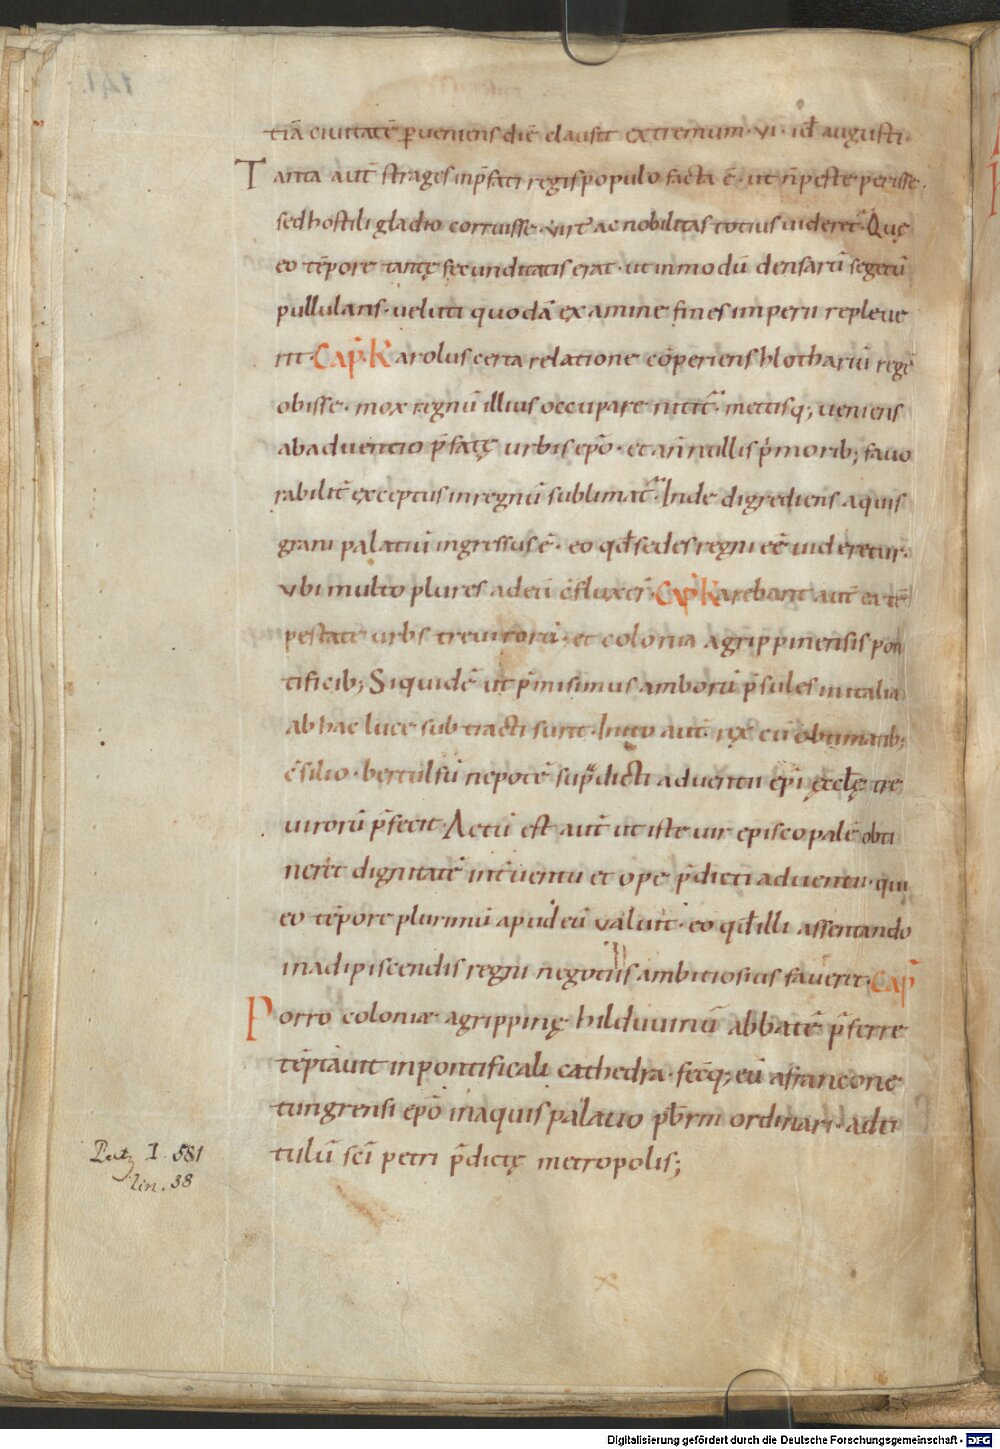 tiā ciuitatē ꝑueniens diē clausit extremum· vi· id̄ augusti·
Tanta aut̄ strages inp̄fati regis populo facta ē· ut n̄ peste perisse·
sed hostili gladio corruisse· vir̄t ac nobilitas totius uideret̄· Quę
eo tēpore tantę fecunditatis erat· ut in modū densarū segetū
pullulans· veluti quodā examine fines imperii repleue
rit· Cap̄ Karolus certa relatione cōperiens hlothariū regē
obisse· mox regnū illius occupare nitit̄· mettisq; veniens
ab adventio p̄fatę urbis ep̄o· et a nonnullis p̄morib; favo
rabilit̄ exceptus in regnū sublimat̄· Inde digrediens aquis
grani palatiū ingressus ē· eo qd̄ sedes regni eē uideretur·
vbi multo plures ad eū c̄fluxer̄· Cap̄ Karebant aut̄ ea tē
pestate urbs treuirorū· et colonia agrippinensis pon
tificib; Siquidē ut p̄misimus amborū p̄sules in italia
ab hac luce subtracti sunt· Inito aut̄ rex cū obtimatib;
c̄silio· bertulfū nepotē sup̄dicti adventii ep̄i ęccl̄ę tre
virorū p̄fecit· Actū est aut̄ ut iste vir episcopalē obti
neret dignitatē int̄ventu et ope p̄dicti adventii· qui
eo tēpore plurimū apud eū valuit· eo qd̄ illi assentando
in adipiscendis regni negotiis ambitiosius faveret· Cap̄
Porro coloniæ agrippinę hilduuinū abbatē p̄ferre
tēptavit in pontificali cathedra· fecitq; eū a francone
tungrensi ep̄o in aquis palatio pb̄rm ordinari· ad ti
tulū sc̄i petri p̄dictę metropolis;
Pertz I. 581
lin. 38
141.
Digitalisierung gefördert durch die Deutsche Forschungsgemeinschaft - DFG